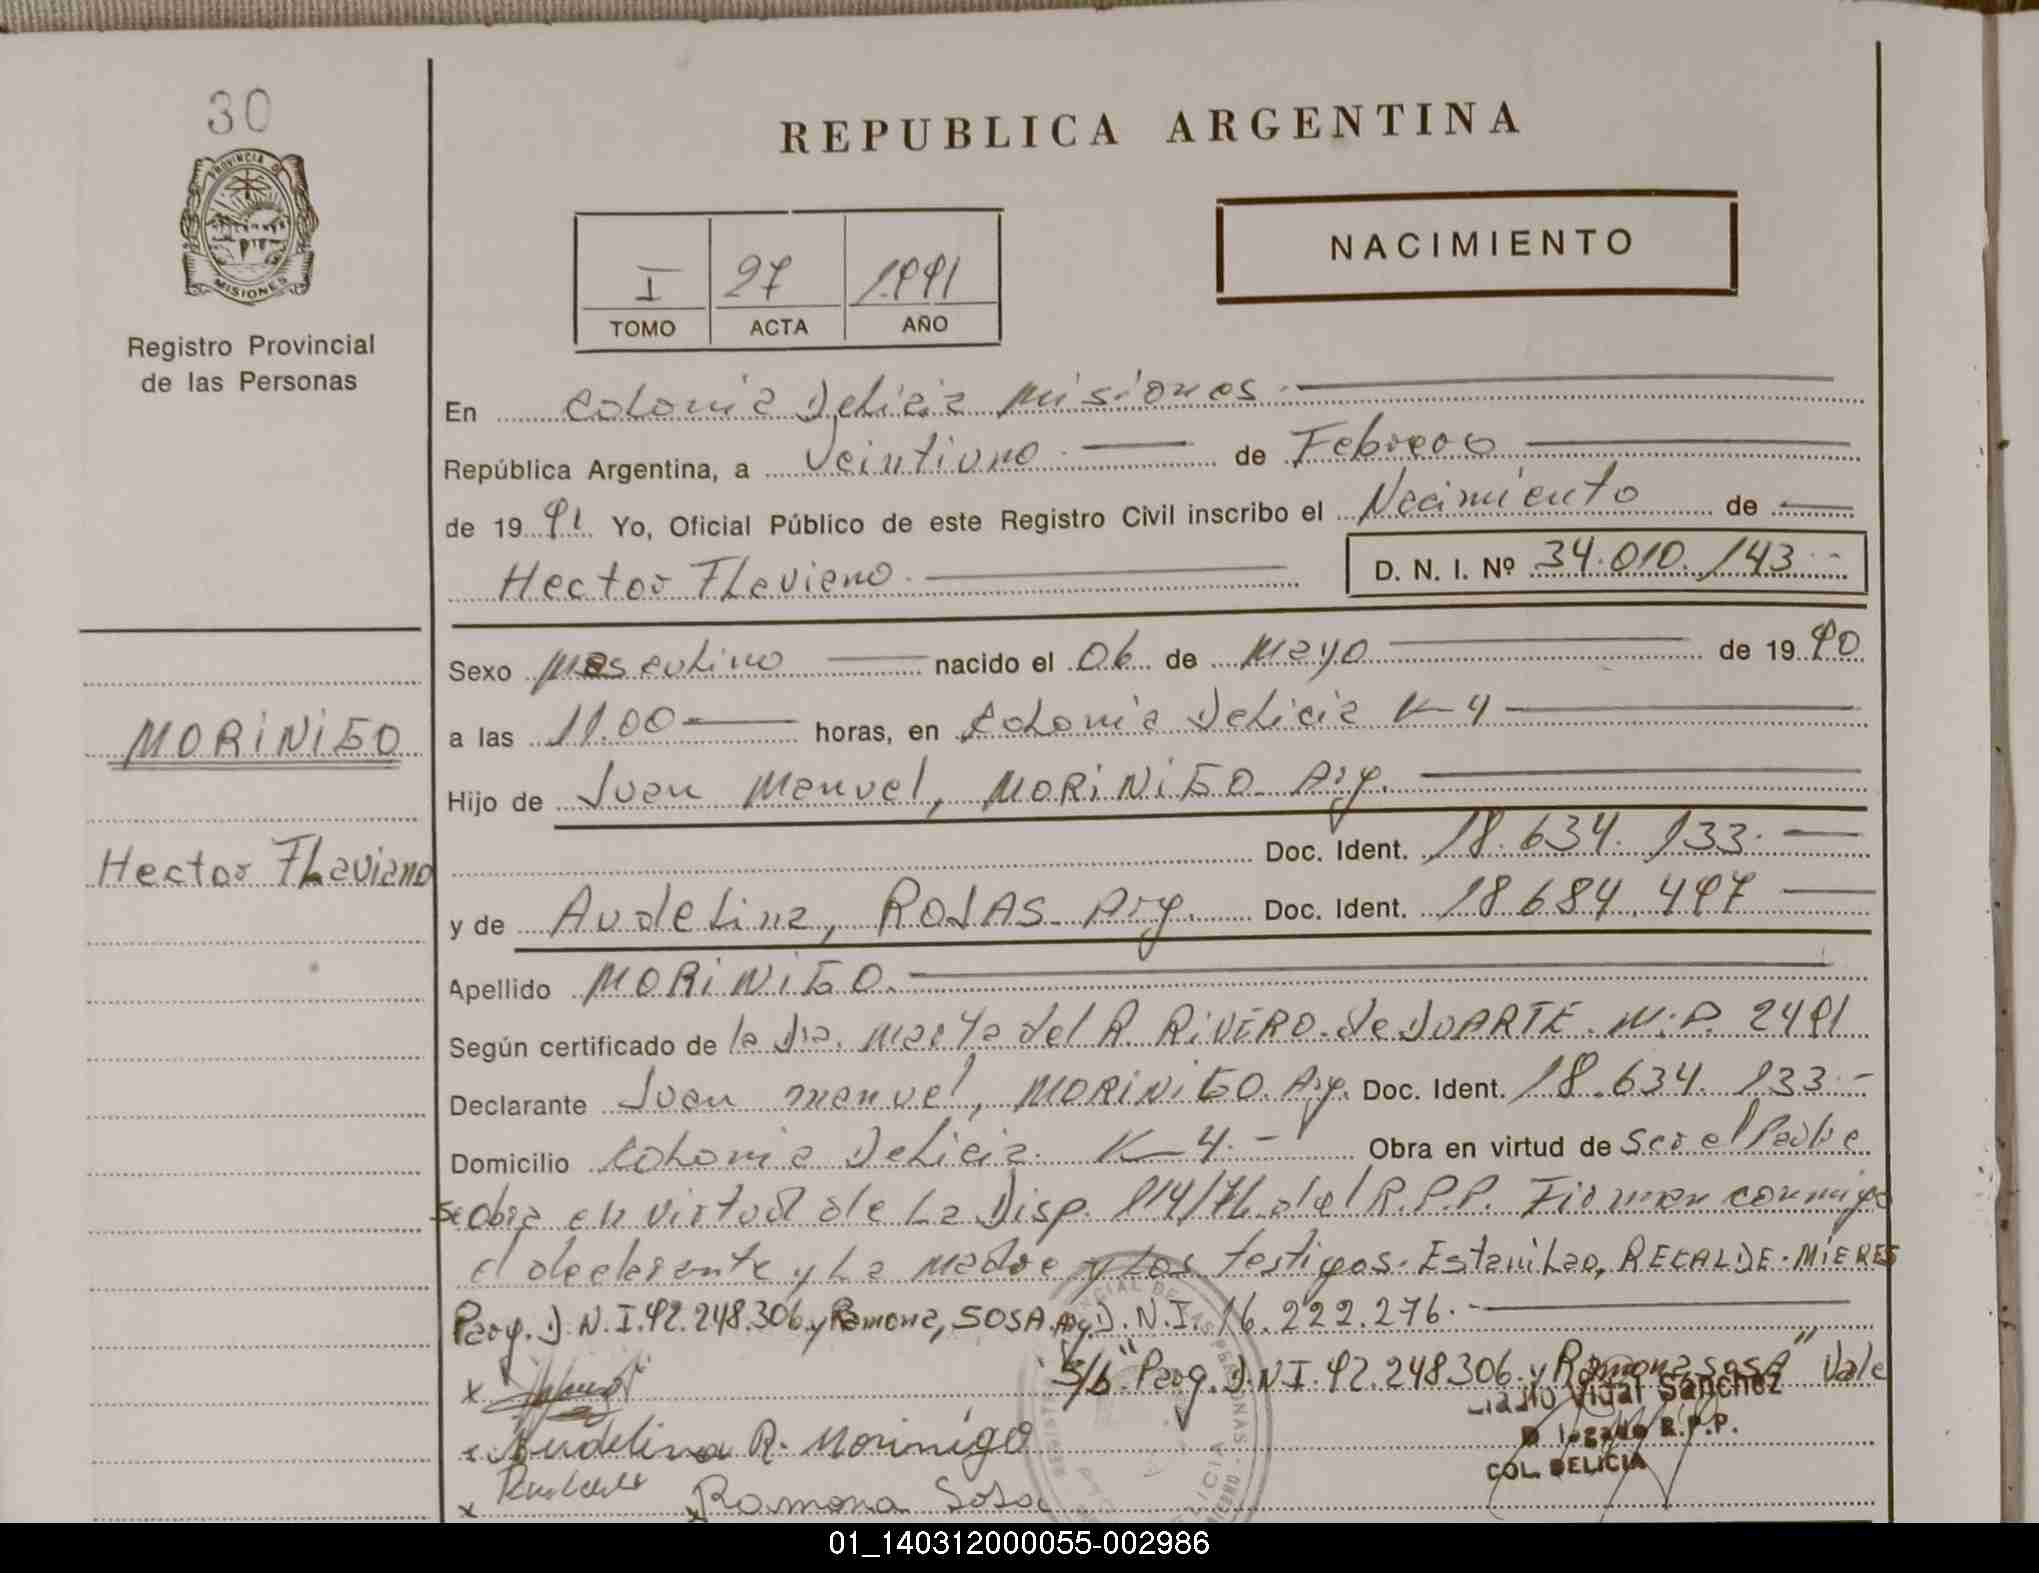 30
PROVINCIA DE
MISIONES
Registro Provincial
de las Personas
REPUBLICA ARGENTINA
NACIMIENTO
I 27 1991
TOMO ACTA AÑO
En Colonia Delicia Misiones.
República Argentina, a Veintiuno de Febrero
de 1991 Yo, Oficial Público de este Registro Civil inscribo el Nacimiento de
Hector Flaviano. D. N. I. Nº 34.010.143.-
Sexo Masculino nacido el 06 de Mayo de 1990
a las 11.00 horas, en Colonia Delicia K-4
MORiNiGO
Hijo de Juan Manuel, MORiNiGO Arg.
Doc. Ident. 18.634.133.
Hector Flaviano
y de Audelina, ROJAS Arg. Doc. Ident. 18.684.497
Apellido MORiNiGO.
Según certificado de la Dra. Marta del R. RiVERO de DUARTE. M.P. 2491
Declarante Juan Manuel, MORiNiGO. Arg. Doc. Ident. 18.634.133.-
Domicilio Colonia Delicia. K-4.- Obra en virtud de Ser el Padre
se obra en virtud de La Disp. 114/76 del R.P.P. Firman conmigo
el declarante y La Madre y Los testigos. Estanislao, RECALDE-MIERES
Parg. D.N.I. 92.248.306 y Ramona, SOSA Arg. D.N.I. 16.222.276.-
S/b "Parg. D.N.I. 92.248.306. y Ramona SOSA" Vale
x
x Audelina R. Morinigo
x
x Ramona Sosa
Vidal Sanchez
R.P.P.
COL. DELICIA
01_140312000055-002986